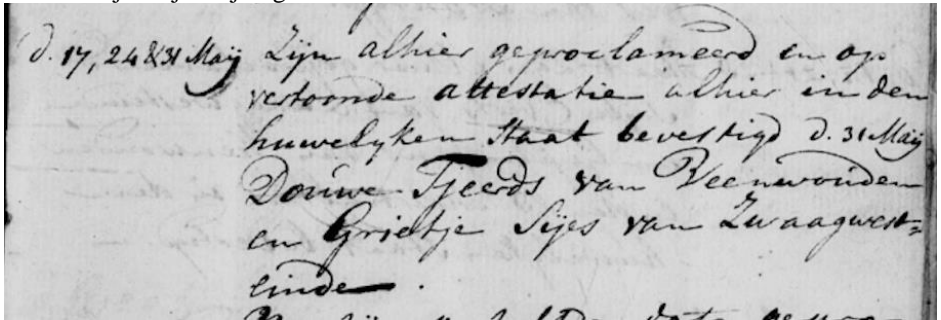 d. 17, 24 & 31 Maij Zijn alhier geproclameerd en op
vertoonde attestatie alhier in den
huwelyken Staat bevestigd d. 31 Maij
Douwe Tjeerds van Veenwouden
en Grietje Sijes van Zwaagwest=
einde.